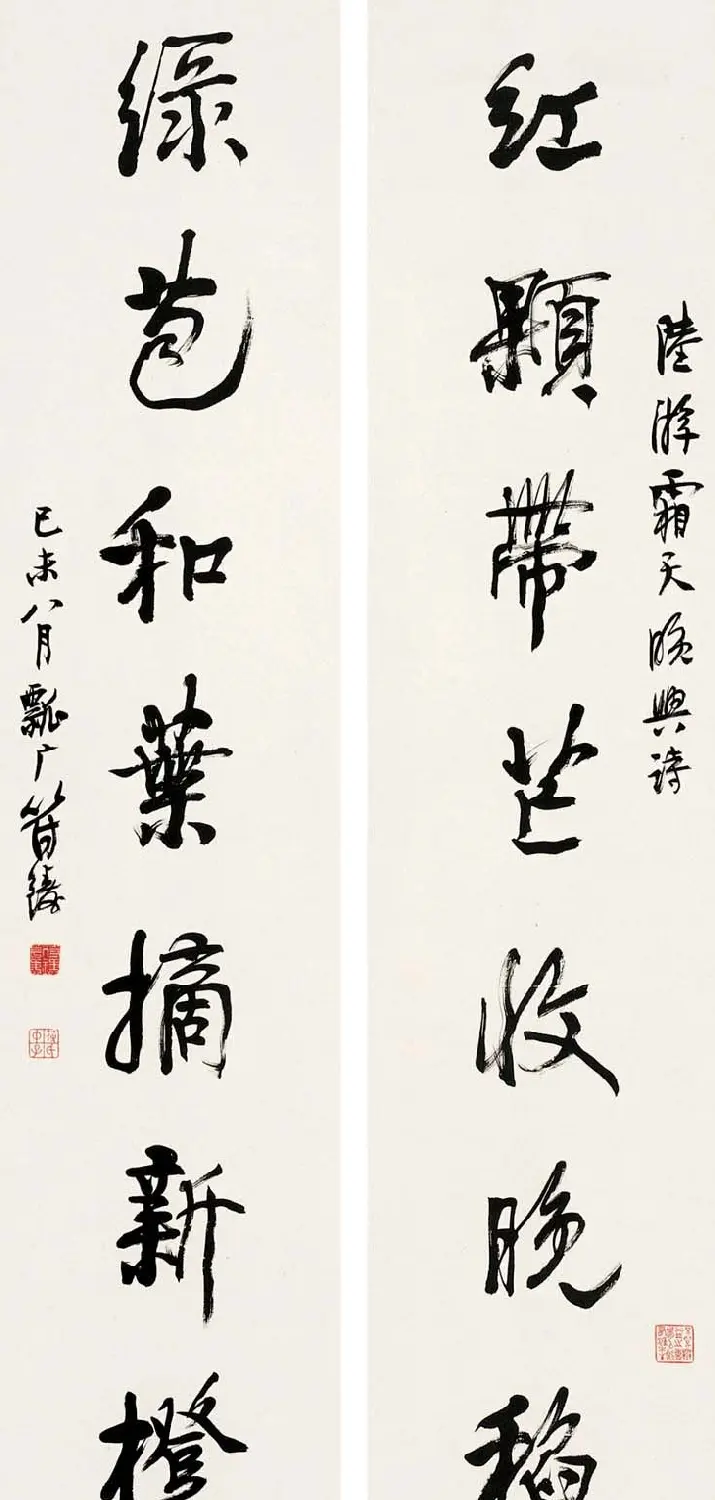 陸游霜天晚興詩
紅顆帶芒收晚稻
綠苞和葉摘新橙
己未八月瓢广